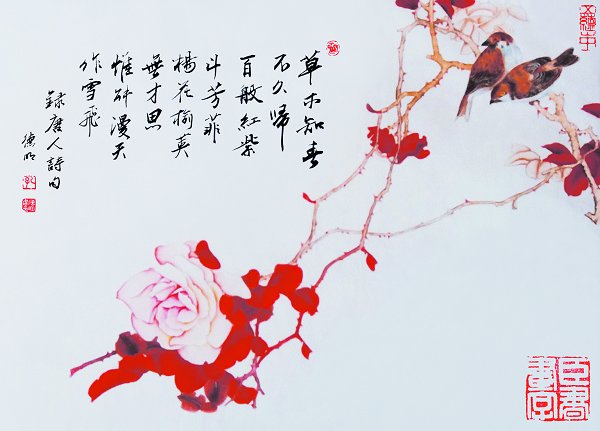 草木知春
不久歸
百般紅紫
斗芳菲
楊花榆莢
無才思
惟解漫天
作雪飛
録唐人詩句
德明